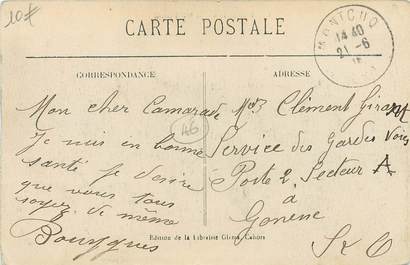 10f
CARTE POSTALE
MONTCUQ
14 40
21 - 6
CORRESPONDANCE
ADRESSE
Mon cher Camarade
Je suis en bonne
santé je désire
que vous tous
soyez de même
46
Mr Clément
Service des Gardes Voies
Poste 2 Secteur A
à
Gonesse
S & O
Edition de la Librairie Cahors